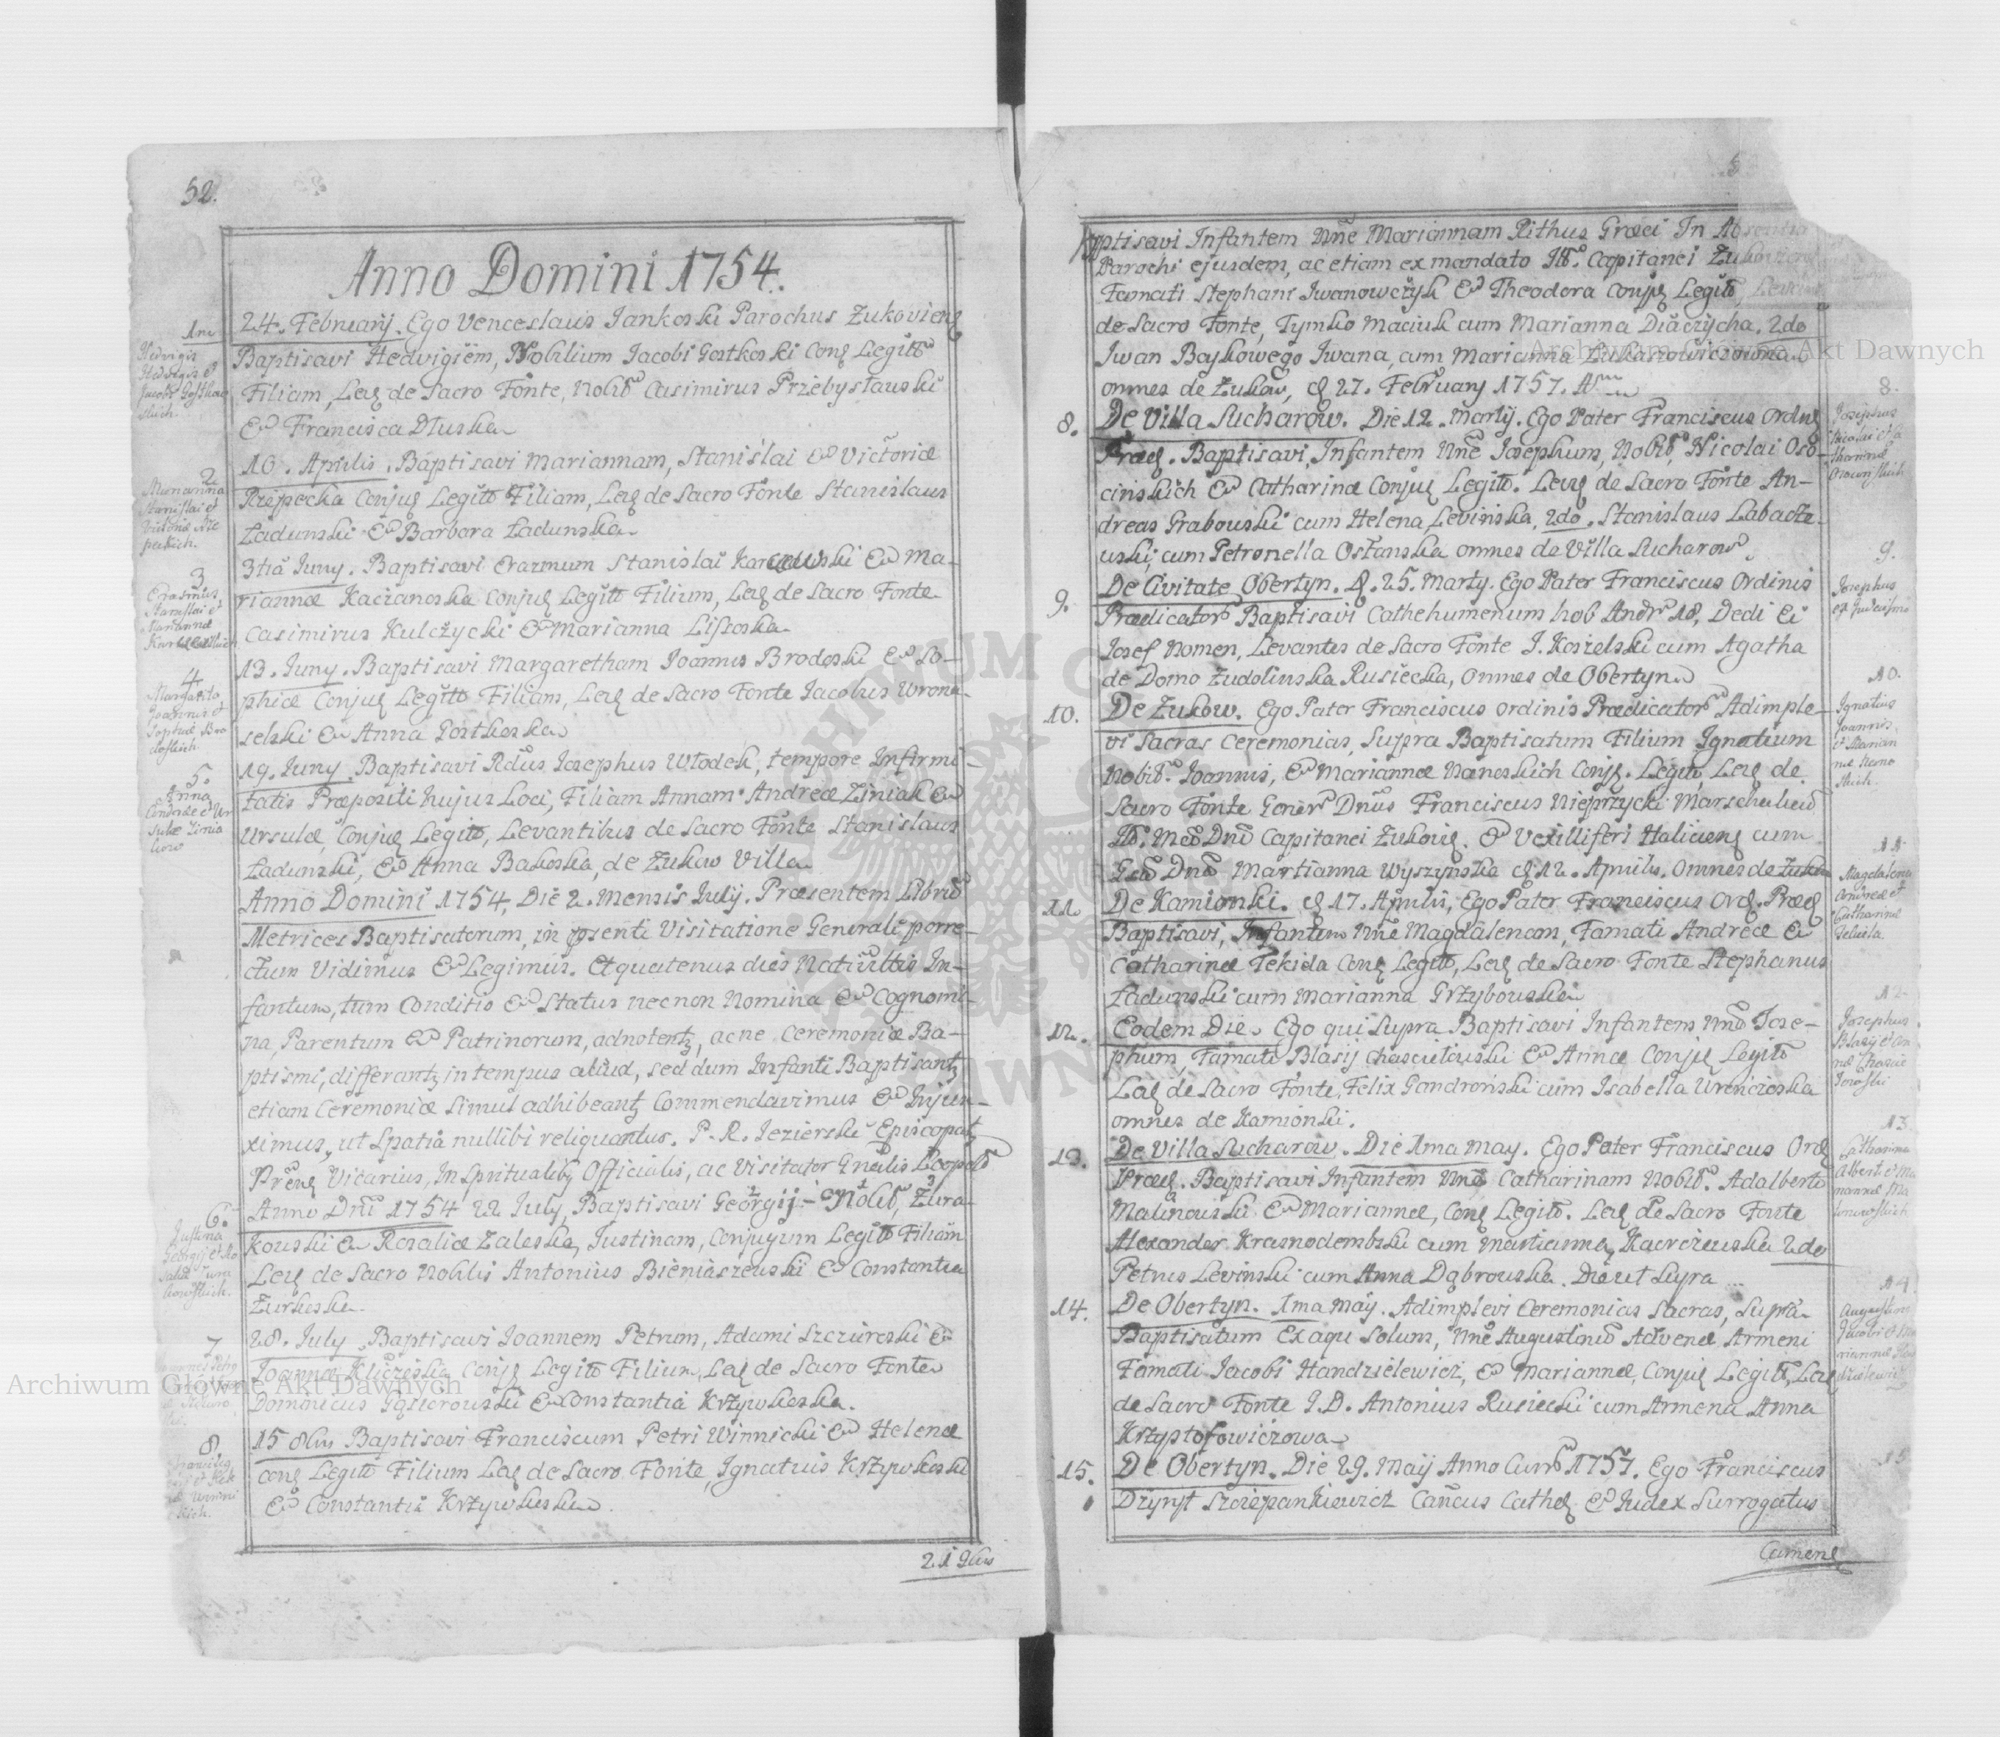 52.
Anno Domini 1754.
1mᵃ
Hedvigis
Jacobi Gostkos
skich.
24. Februarij. Ego Venceslaus Jankoski Parochus Zukovieng
Baptisavi Hedvigiem, Nobilium Jacobi Gostkoski Conj Legitō
Filiam, Leg de Sacro Fonte, Nobil Casimirus Przebysłauski
& Francisca Dłuska
2
Marianna
Stanislai et
Victoriæ Rze
peckich.
16. Aprilis. Baptisavi Mariannam, Stanislai & Victoriæ
Rzepecka Conjug Legitō Filiam, Leg de Sacro Fonte Stanislaus
Ładunski & Barbara Ładunska
3
Erasmus
Stanislai et
Mariannæ
3tiā Juny. Baptisavi Erazmum Stanislai & Ma-
riannæ Kaczanoska Conjug Legitō Filium, Leg de Sacro Fonte
Casimirus Kulczycki & Marianna Lissoska
4.
Margarita
Joannis et
Sophiæ Bro
doskich
13. Juny. Baptisavi Margaretham Joannis Brodoski & So-
phiæ Conjug Legitō Filiam, Leg de Sacro Fonte Jacobus Wrona-
selski & Anna Gostkoska
5.
Anna
Andreæ et Ur
sulæ Zinia
kow
19. Juny. Baptisavi Rdūs Josephus Włodek, tempore Infirmi-
tatis Præpositi hujus Loci, Filiam Annam Andreæ Ziniak &
Ursulæ, Conjug Legitō, Levantibus de Sacro Fonte Stanislaus
Ładunski, & Anna Bakoska, de Zukow Villa
Anno Domini 1754, Die 2. Mensis July. Præsentem Librū
Metrices Baptisatorum, in psenti Visitatione Generali porre-
ctum Vidimus & Legimus. Et quatenus dies Nativitatis In-
fantum, tum Conditio & Status necnon Nomina & Cognomi-
na, Parentum & Patrinorum, adnotentz, ac ne Ceremoniæ Ba-
ptismi, differantz in tempus aliud, sed dum Infanti Baptisantz
etiam Ceremoniæ Simul adhibeantz Commendavimus & Injun-
ximus, ut Spatia nullibi reliquantur. P. R. Jezierski Episcopatz
Præng Vicarius, In Spiritualibz Officialis, ac Visitator Gnēralis Leopolō
6.
Justina
Georgij et Ro
saliæ Zura
kowskich.
Anno Dnī 1754 22 July, Baptisavi Georgij Nobil Zura-
kouski & Rosaliæ Zaleska, Justinam, Conjugum Legitō Filiam
Leg de Sacro Nobilis Antonius Bieniaszeuski & Constantia
Zurkoska
7.
28. July. Baptisavi Joannem Petrum, Adami Szczureski &
Joannæ Kliczeska Conjg Legitō Filium, Leg de Sacro Fonte
Dominicus Gąsiorouski & Constantia Krzywkoska.
8.
15 8bris Baptisavi Franciscum Petri Winnicki & Helenæ
Conj Legitō Filium Leg de Sacro Fonte, Ignatius Krzywkoski
& Constantia Krzywkoska.
21 9bris
Baptisavi Infantem Nn̄e Mariannam Rithus Græci In Absentia
Parochi ejusdem, ac etiam ex mandato Ill. Capitanei
Famati Stephani Iwanowczyk & Theodora Conjg Legitō,
de Sacro Fonte, Tymko Maciuk cum Marianna Diaczycha. 2do
Iwan Baykowego Iwana, cum Marianna Łukasiowiczowna
omnes de Zukow, d 27. February 1757. A
8. De Villa Sucharow. Die 12. Marty. Ego Pater Franciscus Ordng
Præd. Baptisavi, Infantem Nn̄e Josephum, Nobil Nicolai Oso
cinskich & Catharinæ Conjug Legitō. Levg de Sacro Fonte An-
dreas Grabouski cum Helena Levinska, 2do. Stanislaus Labacze-
uski, cum Petronella Ostanska omnes de Villa Sucharow.
8.
Josephus
Nicolai et Ca
tharinæ
9. De Civitate Obertyn. d. 25. Marty. Ego Pater Franciscus Ordinis
Prædicator Baptisavi Cathehumenum hob Andr 18, Dedi Ei
Josef Nomen, Levantes de Sacro Fonte J. Kozelski cum Agatha
de Domo Zudolinska Rusiecka, omnes de Obertyn
9.
Josephus
ex Judaismo
10. De Zukow. Ego Pater Franciscus Ordinis Prædicator Adimple-
vi Sacras Ceremonias, Supra Baptisatum Filium Ignatium
Nobil. Joannis, & Mariannæ Nanoskich Conjg. Legitō, Leg de
Sacro Fonte Gener Dnūs Franciscus Nieprzycki Marschalcus
Ill. Mei Dnī Capitanei Zukoviē. & Vexilliferi Haliciens cum
Gen Dnā Martianna Wyszynska d 12. Aprilis. Omnes de Zukow
10.
Ignatius
Joannis,
et Marian
næ Nano
skich.
11. De Kamionki. d 17. Aprilis, Ego Pater Franciscus Ord. Præd
Baptisavi, Infantem Nn̄e Magdalenam, Famati Andreæ &
Catharinæ Tekida Conj Legitō, Leg de Sacro Fonte Stephanus
Ładunski cum Marianna Grzybouska
11.
Magdalena
Andreæ et
Catharinæ
12. Eodem Die. Ego qui Supra Baptisavi Infantem Nnō Jose-
phum, Famati Blasij & Annæ Conjg Legitō
Leg de Sacro Fonte, Felix Gondronski cum Isabella Wrenczoska
omnes de Kamionki.
12
Josephus
Blasij et An
næ
13. De Villa Sucharow. Die 1ma May. Ego Pater Franciscus Ord
Præd. Baptisavi Infantem Nnō Catharinam Nobil. Adalberto
Malinouski & Mariannæ, Conj Legitō. Leg de Sacro Fonte
Alexander Krasnodembski cum Martianna, Kaerczeuska 2do
Petrus Levinski cum Anna Dąbrouska. Die ut Supra
13
Catharina
Alberti et Ma
riannæ Ma
linowskich
14. De Obertyn. 1ma May. Adimplevi Ceremonias Sacras, Supra
Baptisatum Ex aqu Solum, Nn̄e Augustinū Advenæ Armeni
Famati Jacobi Handzielewicz, & Mariannæ, Conjug Legitō, Leg
de Sacro Fonte J. D. Antonius Rusiecki cum Armena Anna
Krzyptofowiczowa
14
Augustinus
Jacobi et Ma
riannæ
15. De Obertyn. Die 29. Maij Anno Curr 1757. Ego Franciscus
Dzynyt Szczepankiewicz Cancus Cathed & Judex Surrogatus
15
Camene
Archiwum Główne Akt Dawnych
Archiwum Główne Akt Dawnych
ARCHIWUM GŁÓWNE AKT DAWNYCH